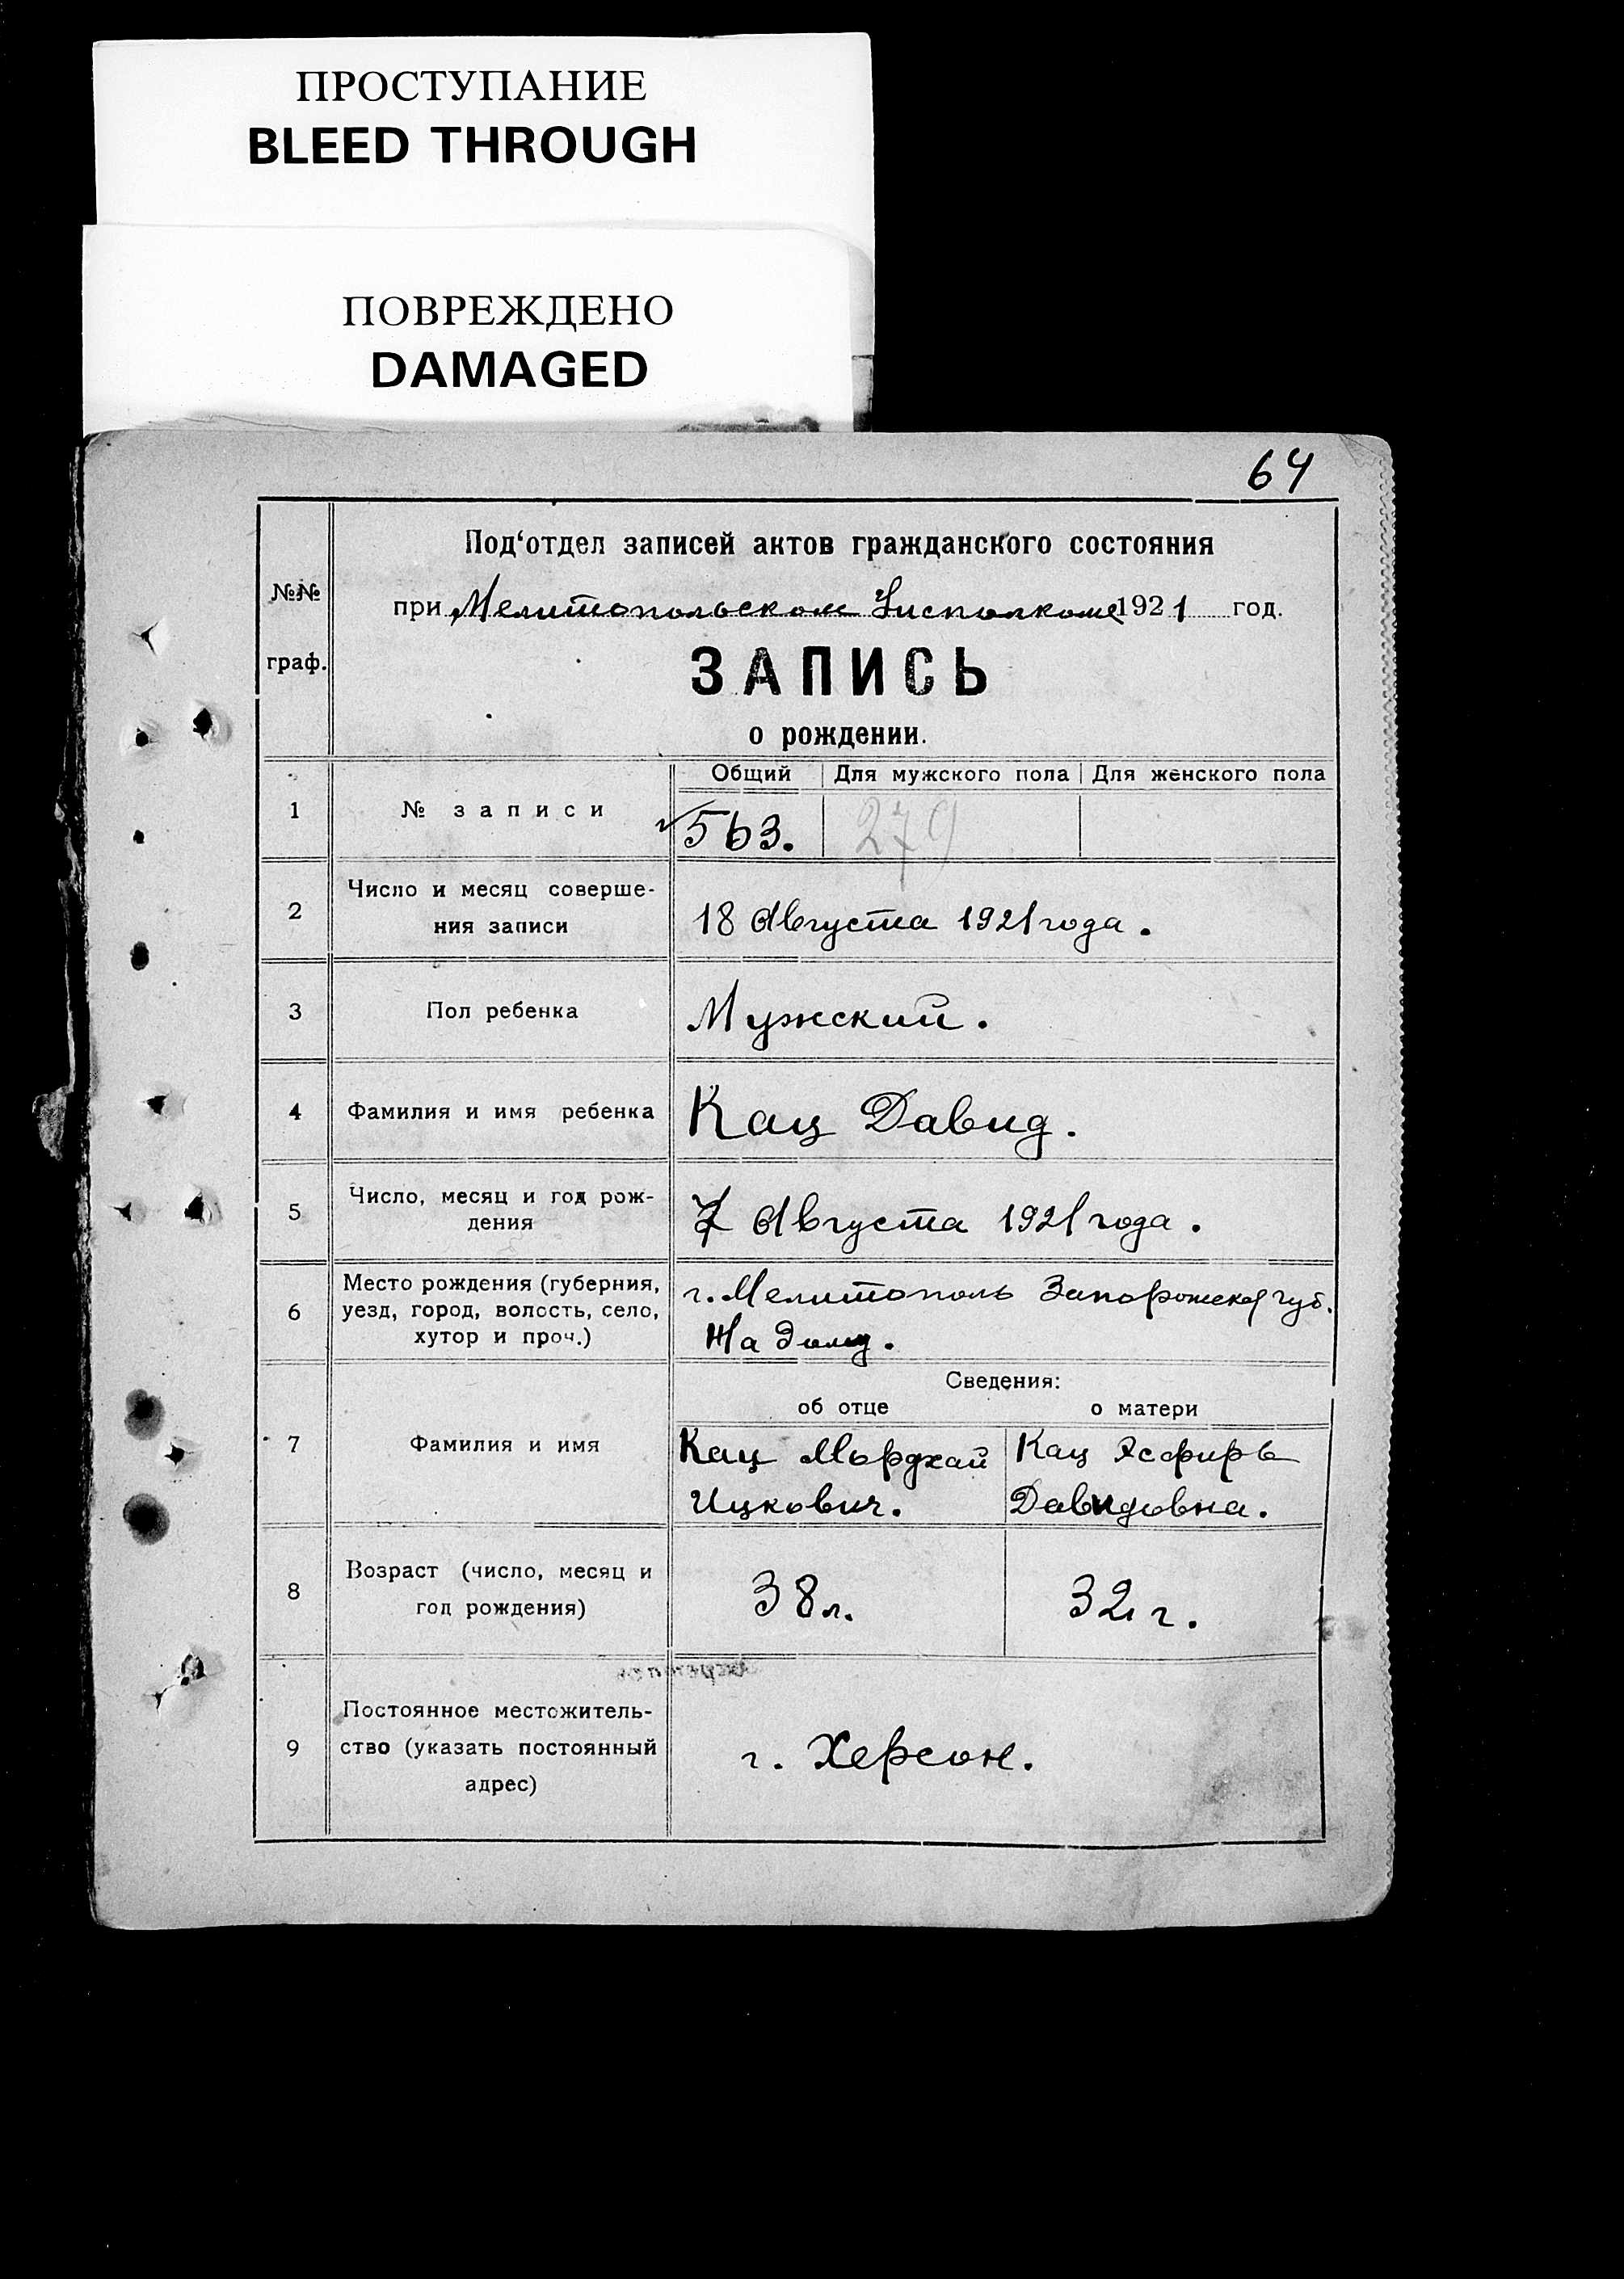 ПРОСТУПАНИЕ
BLEED THROUGH
ПОВРЕЖДЕНО
DAMAGED
64
Под‘отдел записей актов гражданского состояния
№№
при Мелитопольском Уисполкоме 1921 год.
граф.
ЗАПИСЬ
о рождении.
Общий Для мужского пола Для женского пола
1 № записи 563. 279
2 Число и месяц соверше-
ния записи 18 Августа 1921 года.
3 Пол ребенка Мужский.
4 Фамилия и имя ребенка Кац Давид.
5 Число, месяц и год рож-
дения 7 Августа 1921 года.
6 Место рождения (губерния,
уезд, город, волость, село,
хутор и проч.)
г. Мелитополь Запорожской губ.
На дому.
Сведения:
об отце о матери
7 Фамилия и имя
Кац Мордхай Кац Эсфирь
Ицкович. Давидовна.
8 Возраст (число, месяц и
год рождения) 38 л. 32 г.
9 Постоянное местожитель-
ство (указать постоянный
адрес)
г. Херсон.